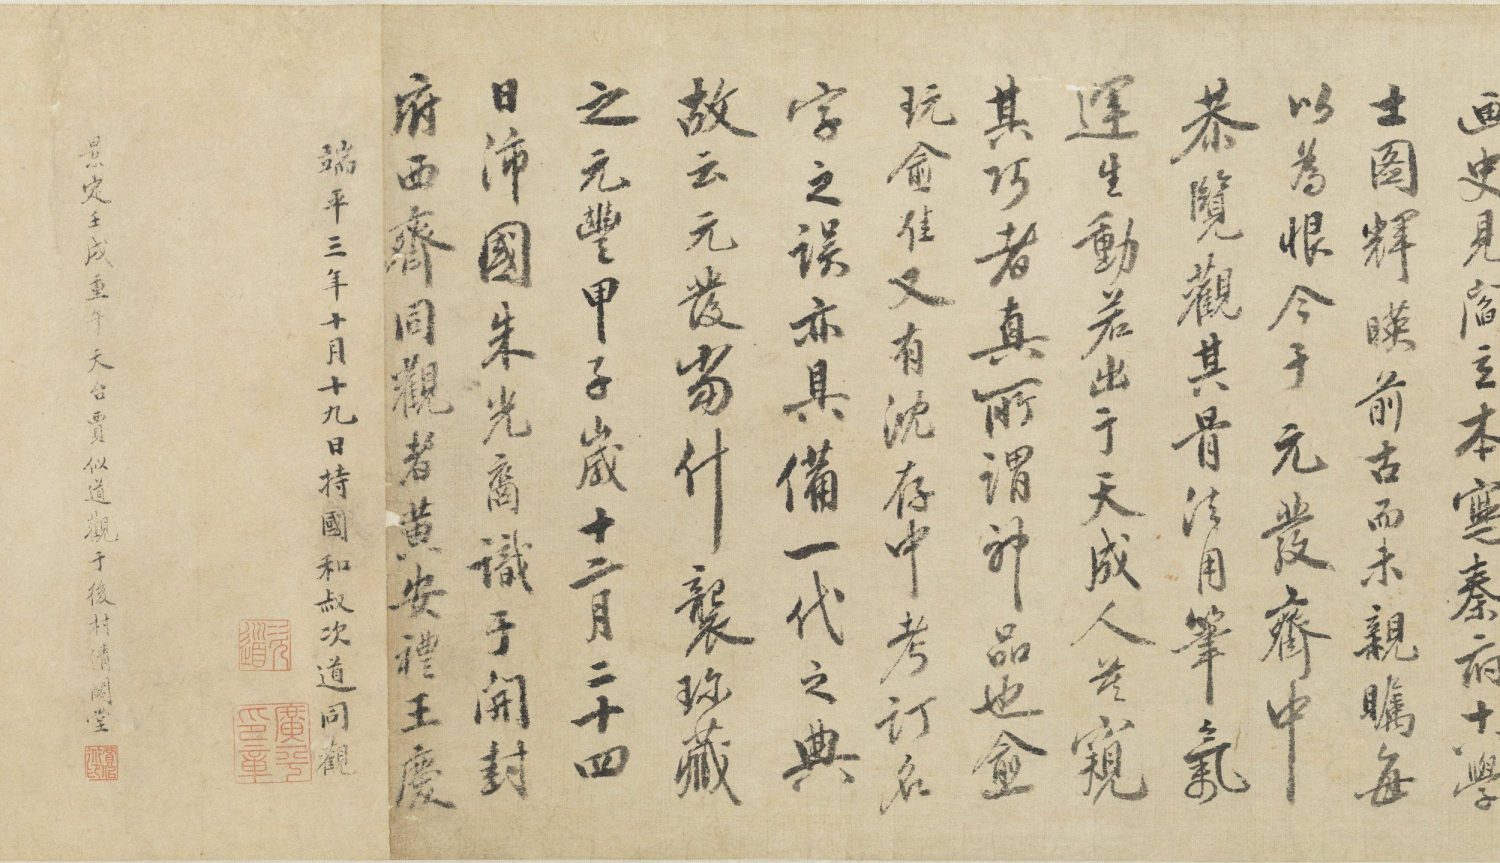 画史見閻立本寫秦府十學
士圖輝暎前古而未親矚每
以為恨今于元發齋中
恭覽觀其骨法用筆氣
運生動若出于天成人莫窺
其巧者真所謂神品也僉
玩僉佳又有沈存中考訂名
字之誤亦具備一代之典
故云元發當什襲珍藏
之元豐甲子歲十二月二十四
日沛國朱光裔識于開封
府西齋同觀者黃安禮王慶
端平三年十月十九日持國和叔次道同觀
次道
廣平印章
景定壬戌重午天台賈似道觀于後村清閟堂